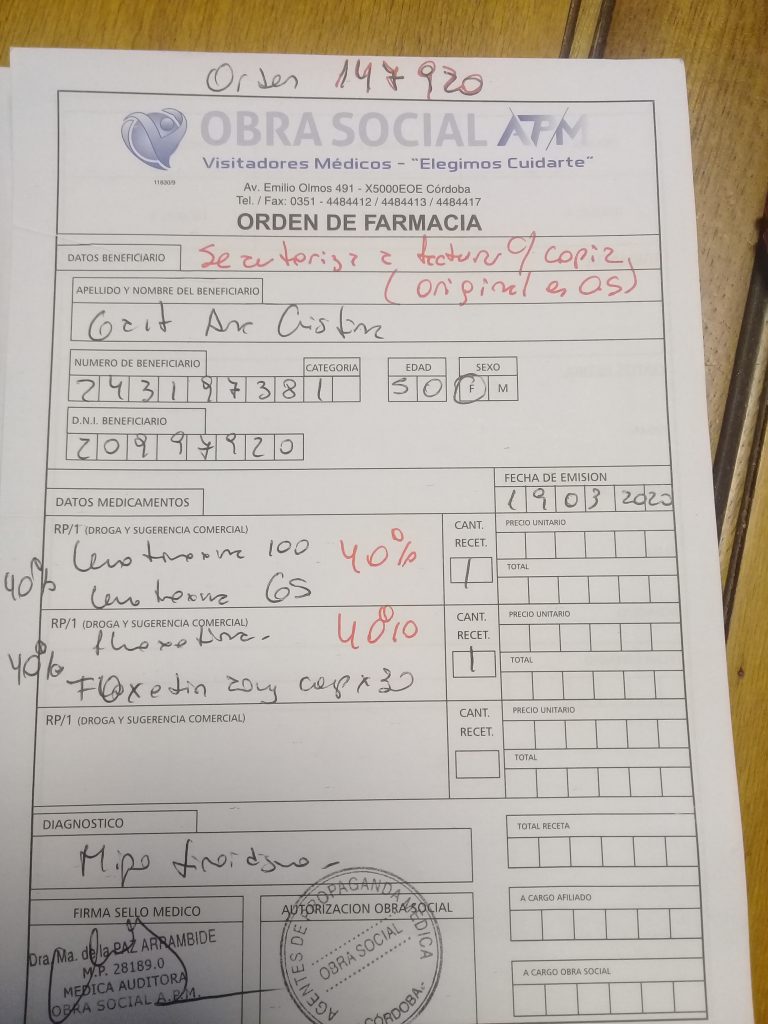 Orden 147920
OBRA SOCIAL APM
Visitadores Médicos - "Elegimos Cuidarte"
11630/9
Av. Emilio Olmos 491 - X5000EOE Córdoba
Tel. / Fax: 0351 - 4484412 / 4484413 / 4484417
ORDEN DE FARMACIA
DATOS BENEFICIARIO
Se autoriza a facturar c/ copia
(original es OS)
APELLIDO Y NOMBRE DEL BENEFICIARIO
Ana Cristina
NUMERO DE BENEFICIARIO CATEGORIA EDAD SEXO
243197381 50 F M
D.N.I. BENEFICIARIO
20997920
FECHA DE EMISION
19032020
DATOS MEDICAMENTOS
RP/1 (DROGA Y SUGERENCIA COMERCIAL) CANT. RECET. PRECIO UNITARIO
Levotiroxina 100 40% 1
TOTAL
40%
RP/1 (DROGA Y SUGERENCIA COMERCIAL) CANT. RECET. PRECIO UNITARIO
fluoxetina - 40% 1
TOTAL
40% Foxetin 20mg cap x 30
RP/1 (DROGA Y SUGERENCIA COMERCIAL) CANT. RECET. PRECIO UNITARIO
TOTAL
DIAGNOSTICO
Hipotiroidismo -
TOTAL RECETA
A CARGO AFILIADO
FIRMA SELLO MEDICO
AUTORIZACION OBRA SOCIAL
Dra. Ma. de la PAZ ARRAMBIDE
M.P. 28189.0
MEDICA AUDITORA
OBRA SOCIAL A.P.M.
AGENTES DE PROPAGANDA MEDICA
OBRA SOCIAL
CÓRDOBA.-
A CARGO OBRA SOCIAL